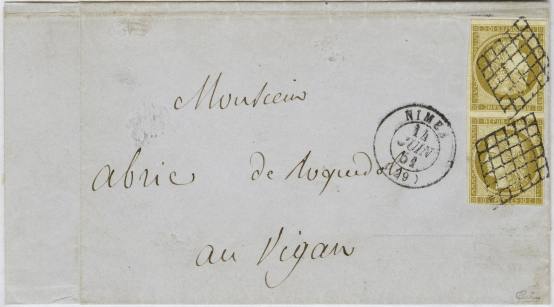 Monsieur
abric de roquedo
au Vigan
NIMES
14
JUIN
51
(29)
REPUB